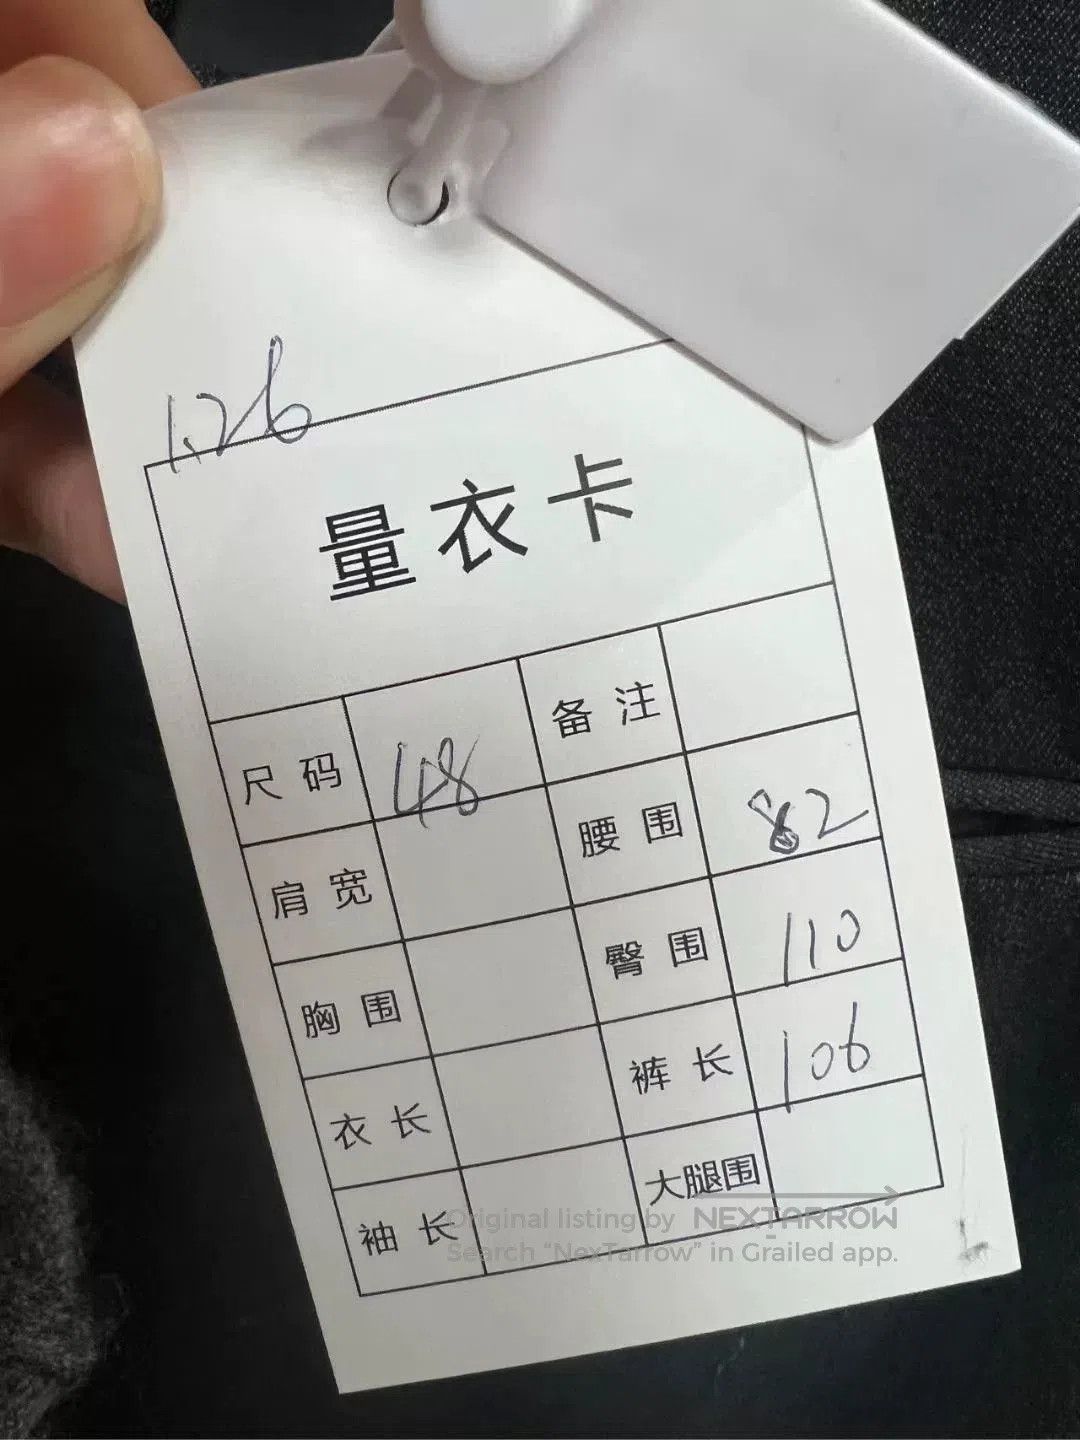 1.26
量衣卡
尺码 48 备注
肩宽 腰围 82
胸围 臀围 110
衣长 裤长 106
袖长 大腿围
Original listing by NEXTARROW
Search “NexTarrow” in Grailed app.